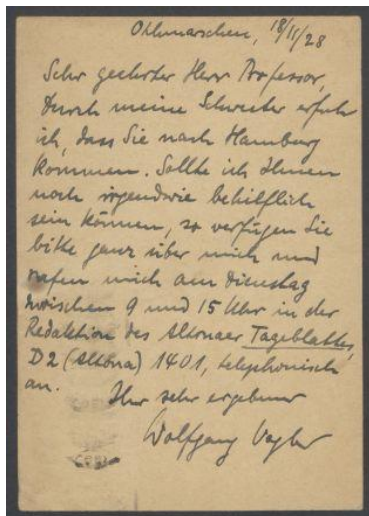 Othmarschen, 18/11/28
Sehr geehrter Herr Professor,
durch meine Schwester erfuhr
ich, dass Sie nach Hamburg
kommen. Sollte ich Ihnen
noch irgendwie behilflich
sein können, so verfügen Sie
bitte ganz über mich und
rufen mich am Dienstag
zwischen 9 und 15 Uhr in der
Redaktion des Altonaer Tageblattes,
D2 (Altona) 1401, telephonisch
an.
Ihr sehr ergebener
Wolfgang